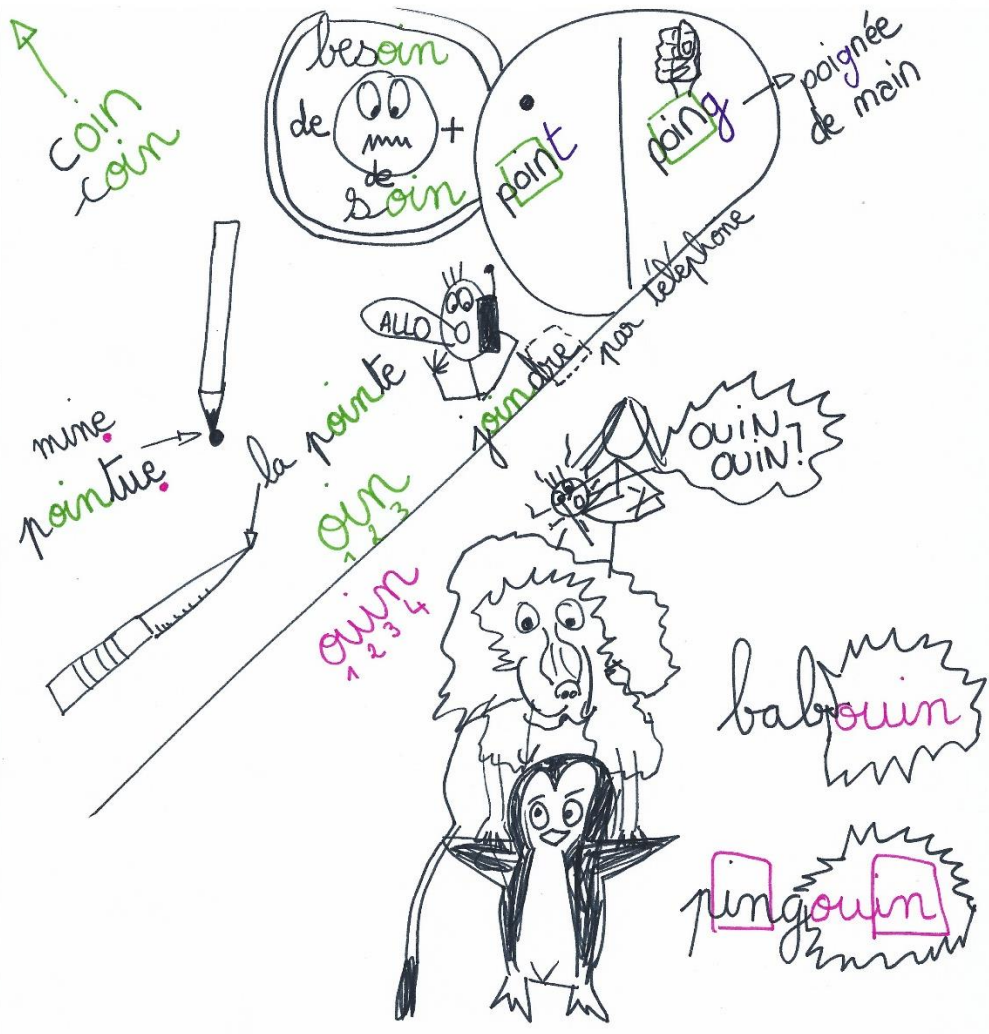 coin
coin
besoin
de +
de
soin
point
poing
poignée
de main
ALLO
joindre
par téléphone
mine
pointue
la pointe
oin
1 2 3
ouin
1 2 3 4
OUIN
OUIN?
babouin
pingouin